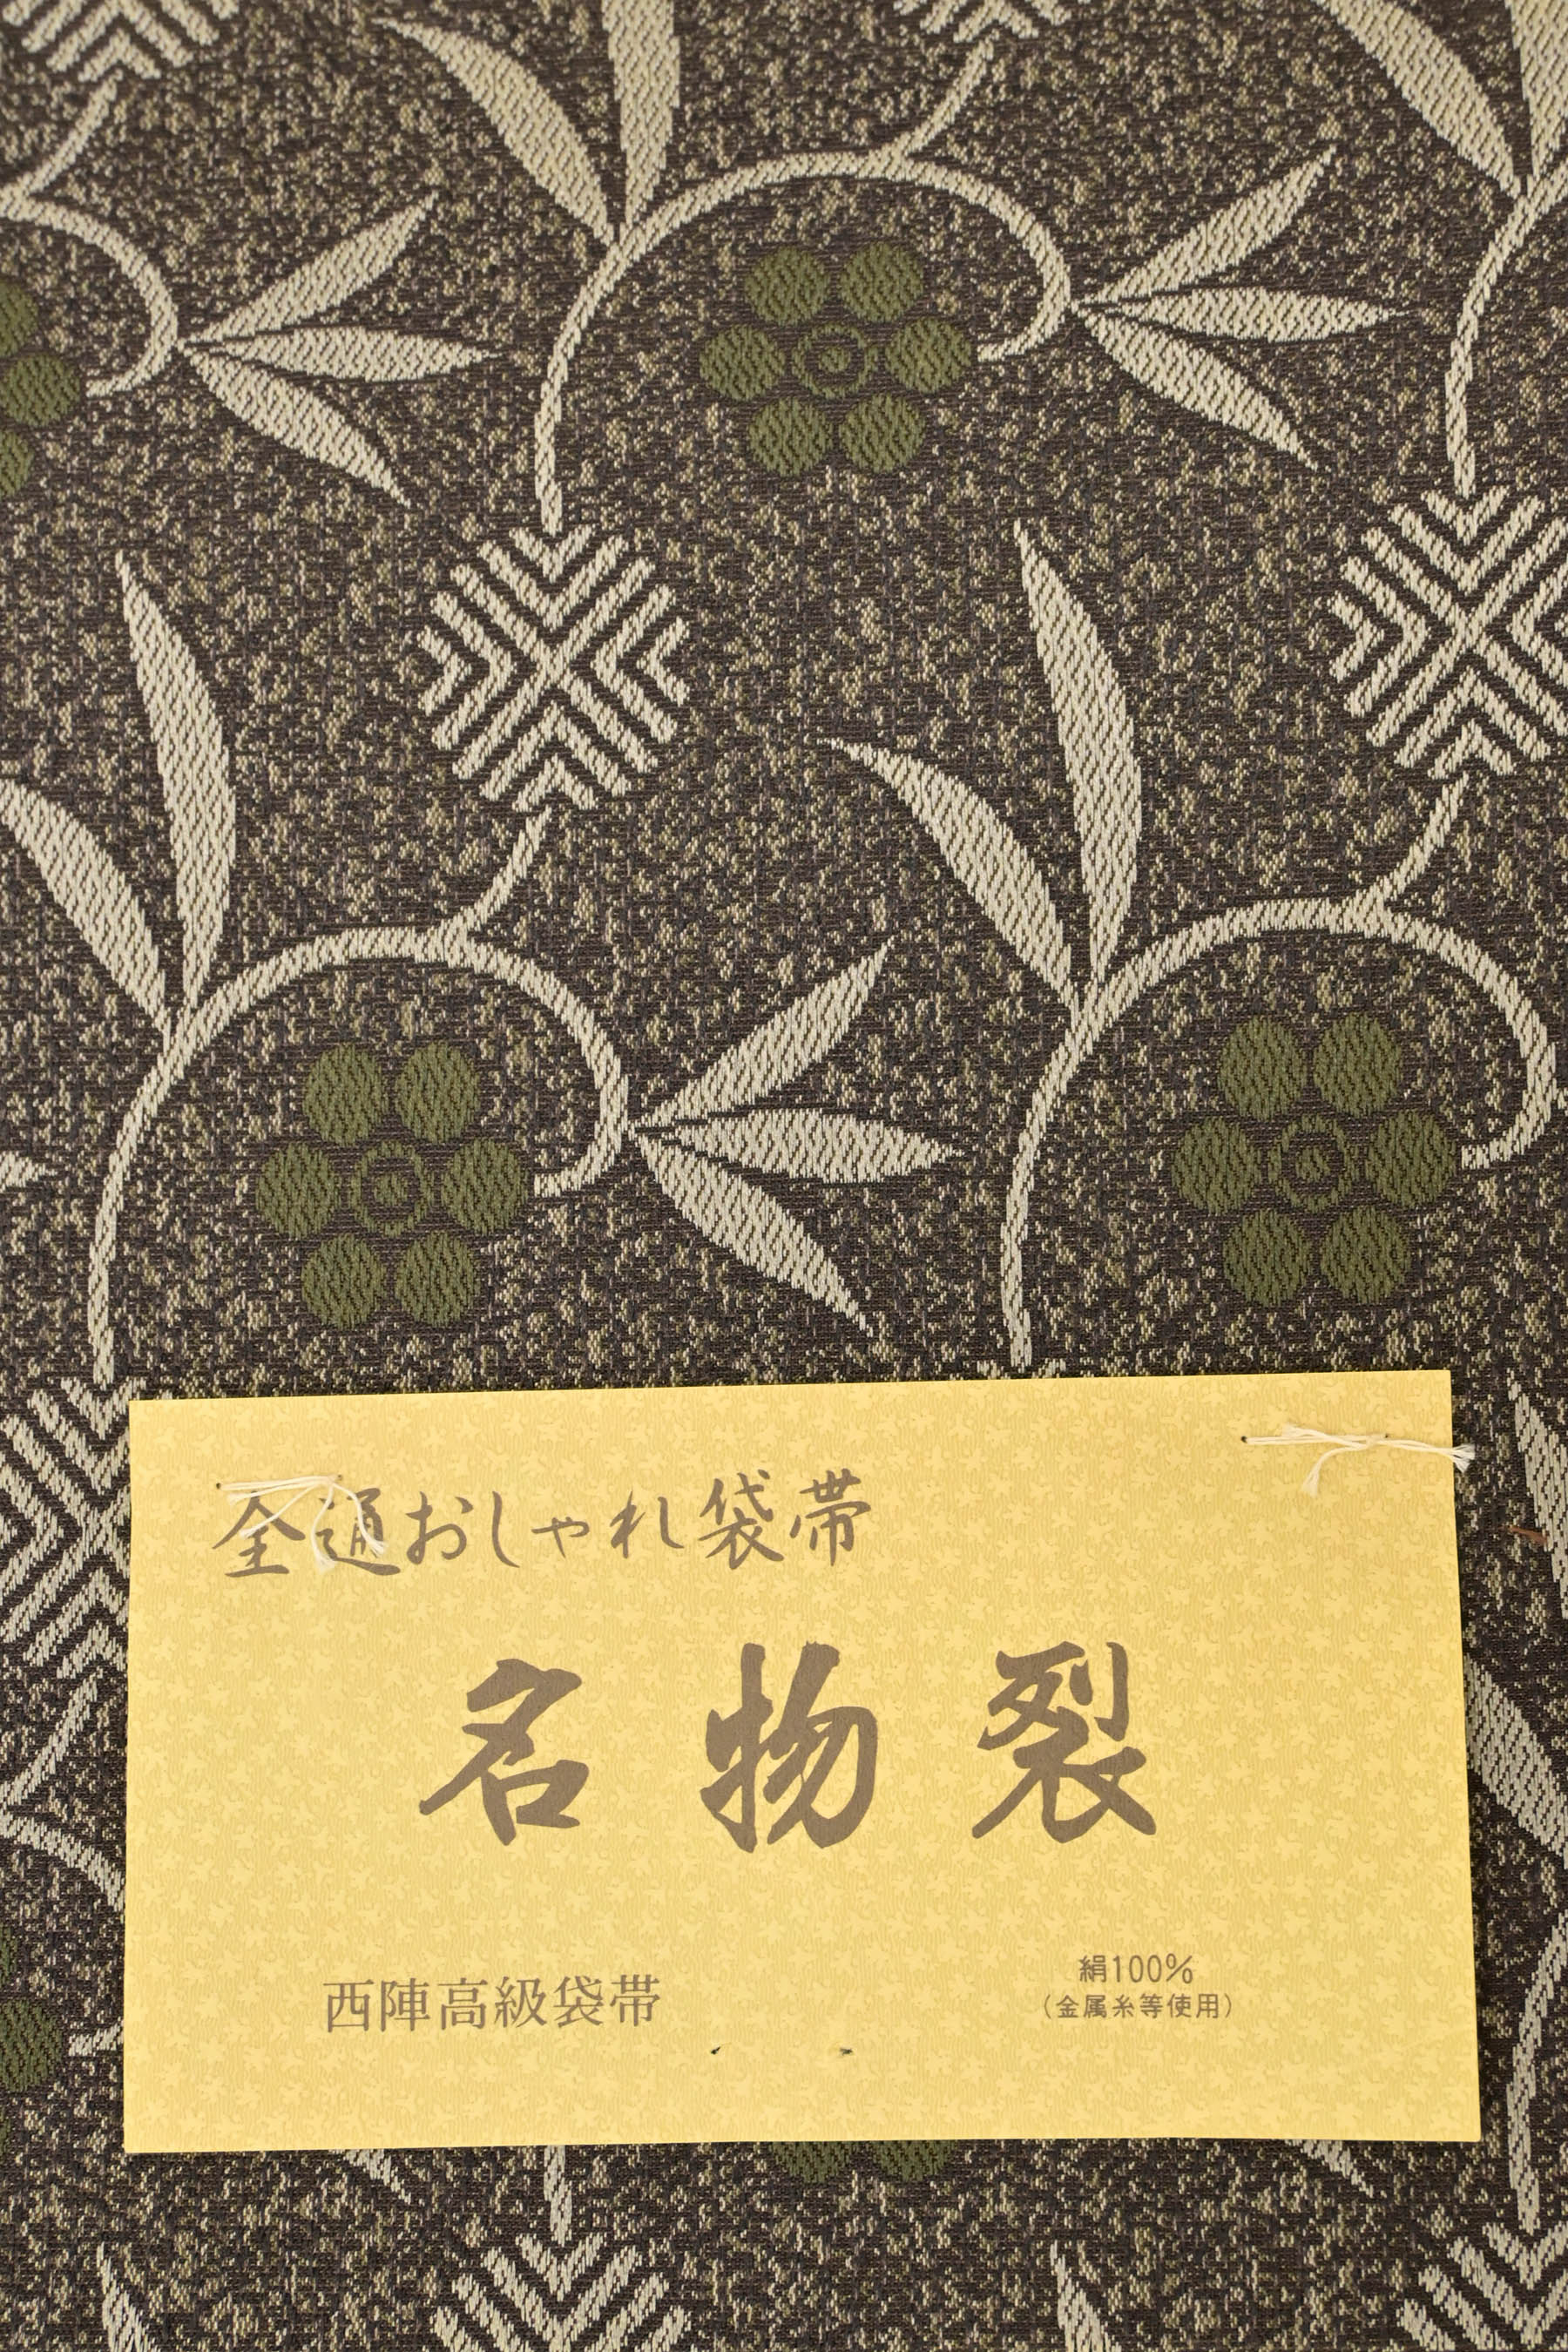 全通おしゃれ袋帯
名物裂
西陣高級袋帯
絹100%
(金属糸等使用)